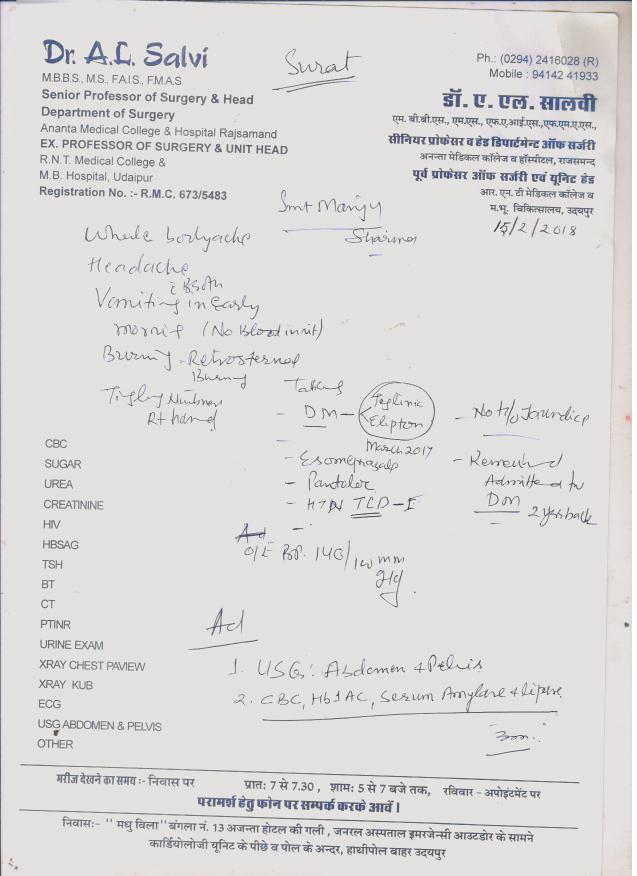 Dr. A.L. Salvi
M.B.B.S., M.S., F.A.I.S., F.M.A.S.
Senior Professor of Surgery & Head
Department of Surgery
Ananta Medical College & Hospital Rajsamand
EX. PROFESSOR OF SURGERY & UNIT HEAD
R.N.T. Medical College &
M.B. Hospital, Udaipur
Registration No. :- R.M.C. 673/5483
Surat
Ph.: (0294) 2416028 (R)
Mobile : 94142 41933
डॉ. ए. एल. सालवी
एम. बी.बी.एस., एम.एस., एफ.ए.आई.एस.,एफ.एम.ए.एस.,
सीनियर प्रोफेसर व हेड डिपार्टमेन्ट ऑफ सर्जरी
अनन्ता मेडिकल कॉलेज व हॉस्पीटल, राजसमन्द
पूर्व प्रोफेसर ऑफ सर्जरी एवं यूनिट हेड
आर. एन. टी मेडिकल कॉलेज व
म.भू. चिकित्सालय, उदयपुर
15/2/2018
Smt Manju
Sharma
Whole bodyache
Headache
Vomiting in early
morning (No Blood in vit)
Burning - Retrosternal
Burning
Tingling Numbness
Rt hand
Taking
- DM -
March 2017
- Esomeprazole
- Pantoloc
- HTN TCD-I
- No H/O Jaundice
- Remained
Admitted for
DM 2 yrs back
O/E B.P. 140/100 mm
Hg
Ad
1. USG: Abdomen & Pelvis
2. CBC, Hb1AC, Serum Amylase & lipase
CBC
SUGAR
UREA
CREATININE
HIV
HBSAG
TSH
BT
CT
PTINR
URINE EXAM
XRAY CHEST PAVIEW
XRAY KUB
ECG
USG ABDOMEN & PELVIS
OTHER
मरीज देखने का समय :- निवास पर प्रात: 7 से 7.30 , शाम: 5 से 7 बजे तक, रविवार - अपोइंटमेंट पर
परामर्श हेतु फोन पर सम्पर्क करके आवें।
निवास:- " मधु विला" बंगला नं. 13 अजन्ता होटल की गली , जनरल अस्पताल इमरजेन्सी आउटडोर के सामने
कार्डियोलोजी यूनिट के पीछे व पोल के अन्दर, हाथीपोल बाहर उदयपुर